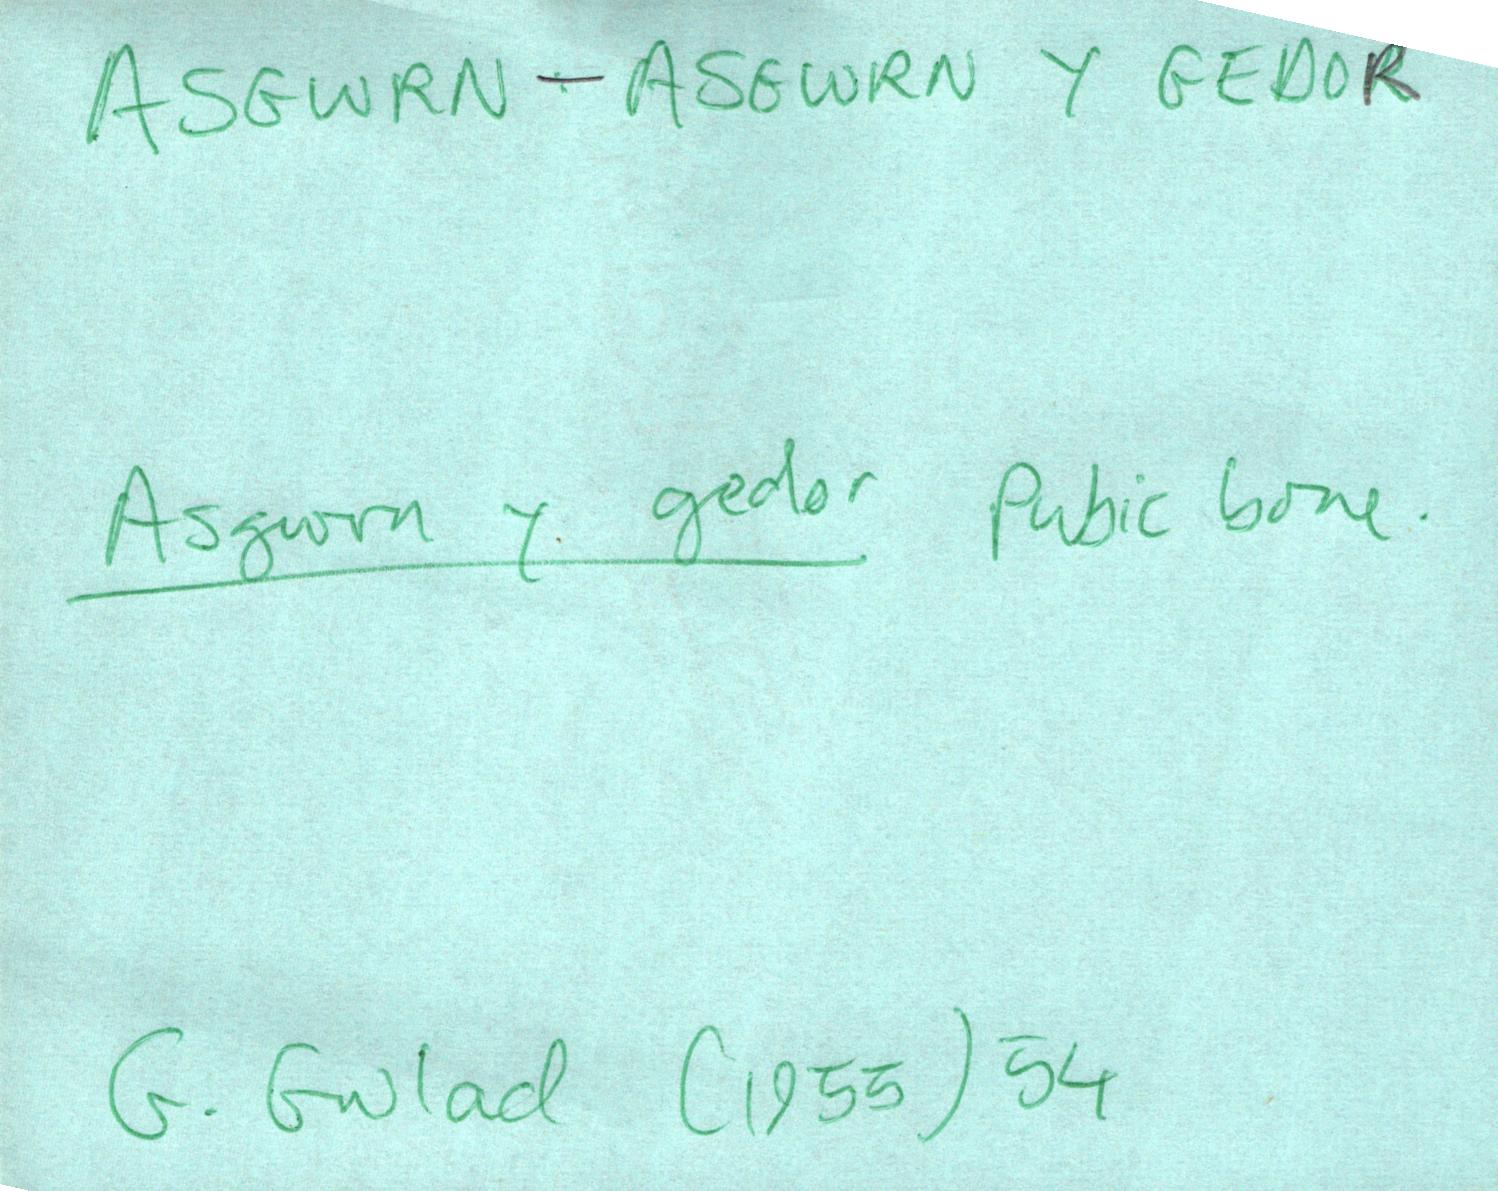 ASGWRN - ASGWRN Y GEDOR
Asgwrn y gedor Pubic bone.
G. Gwlad (1955) 54